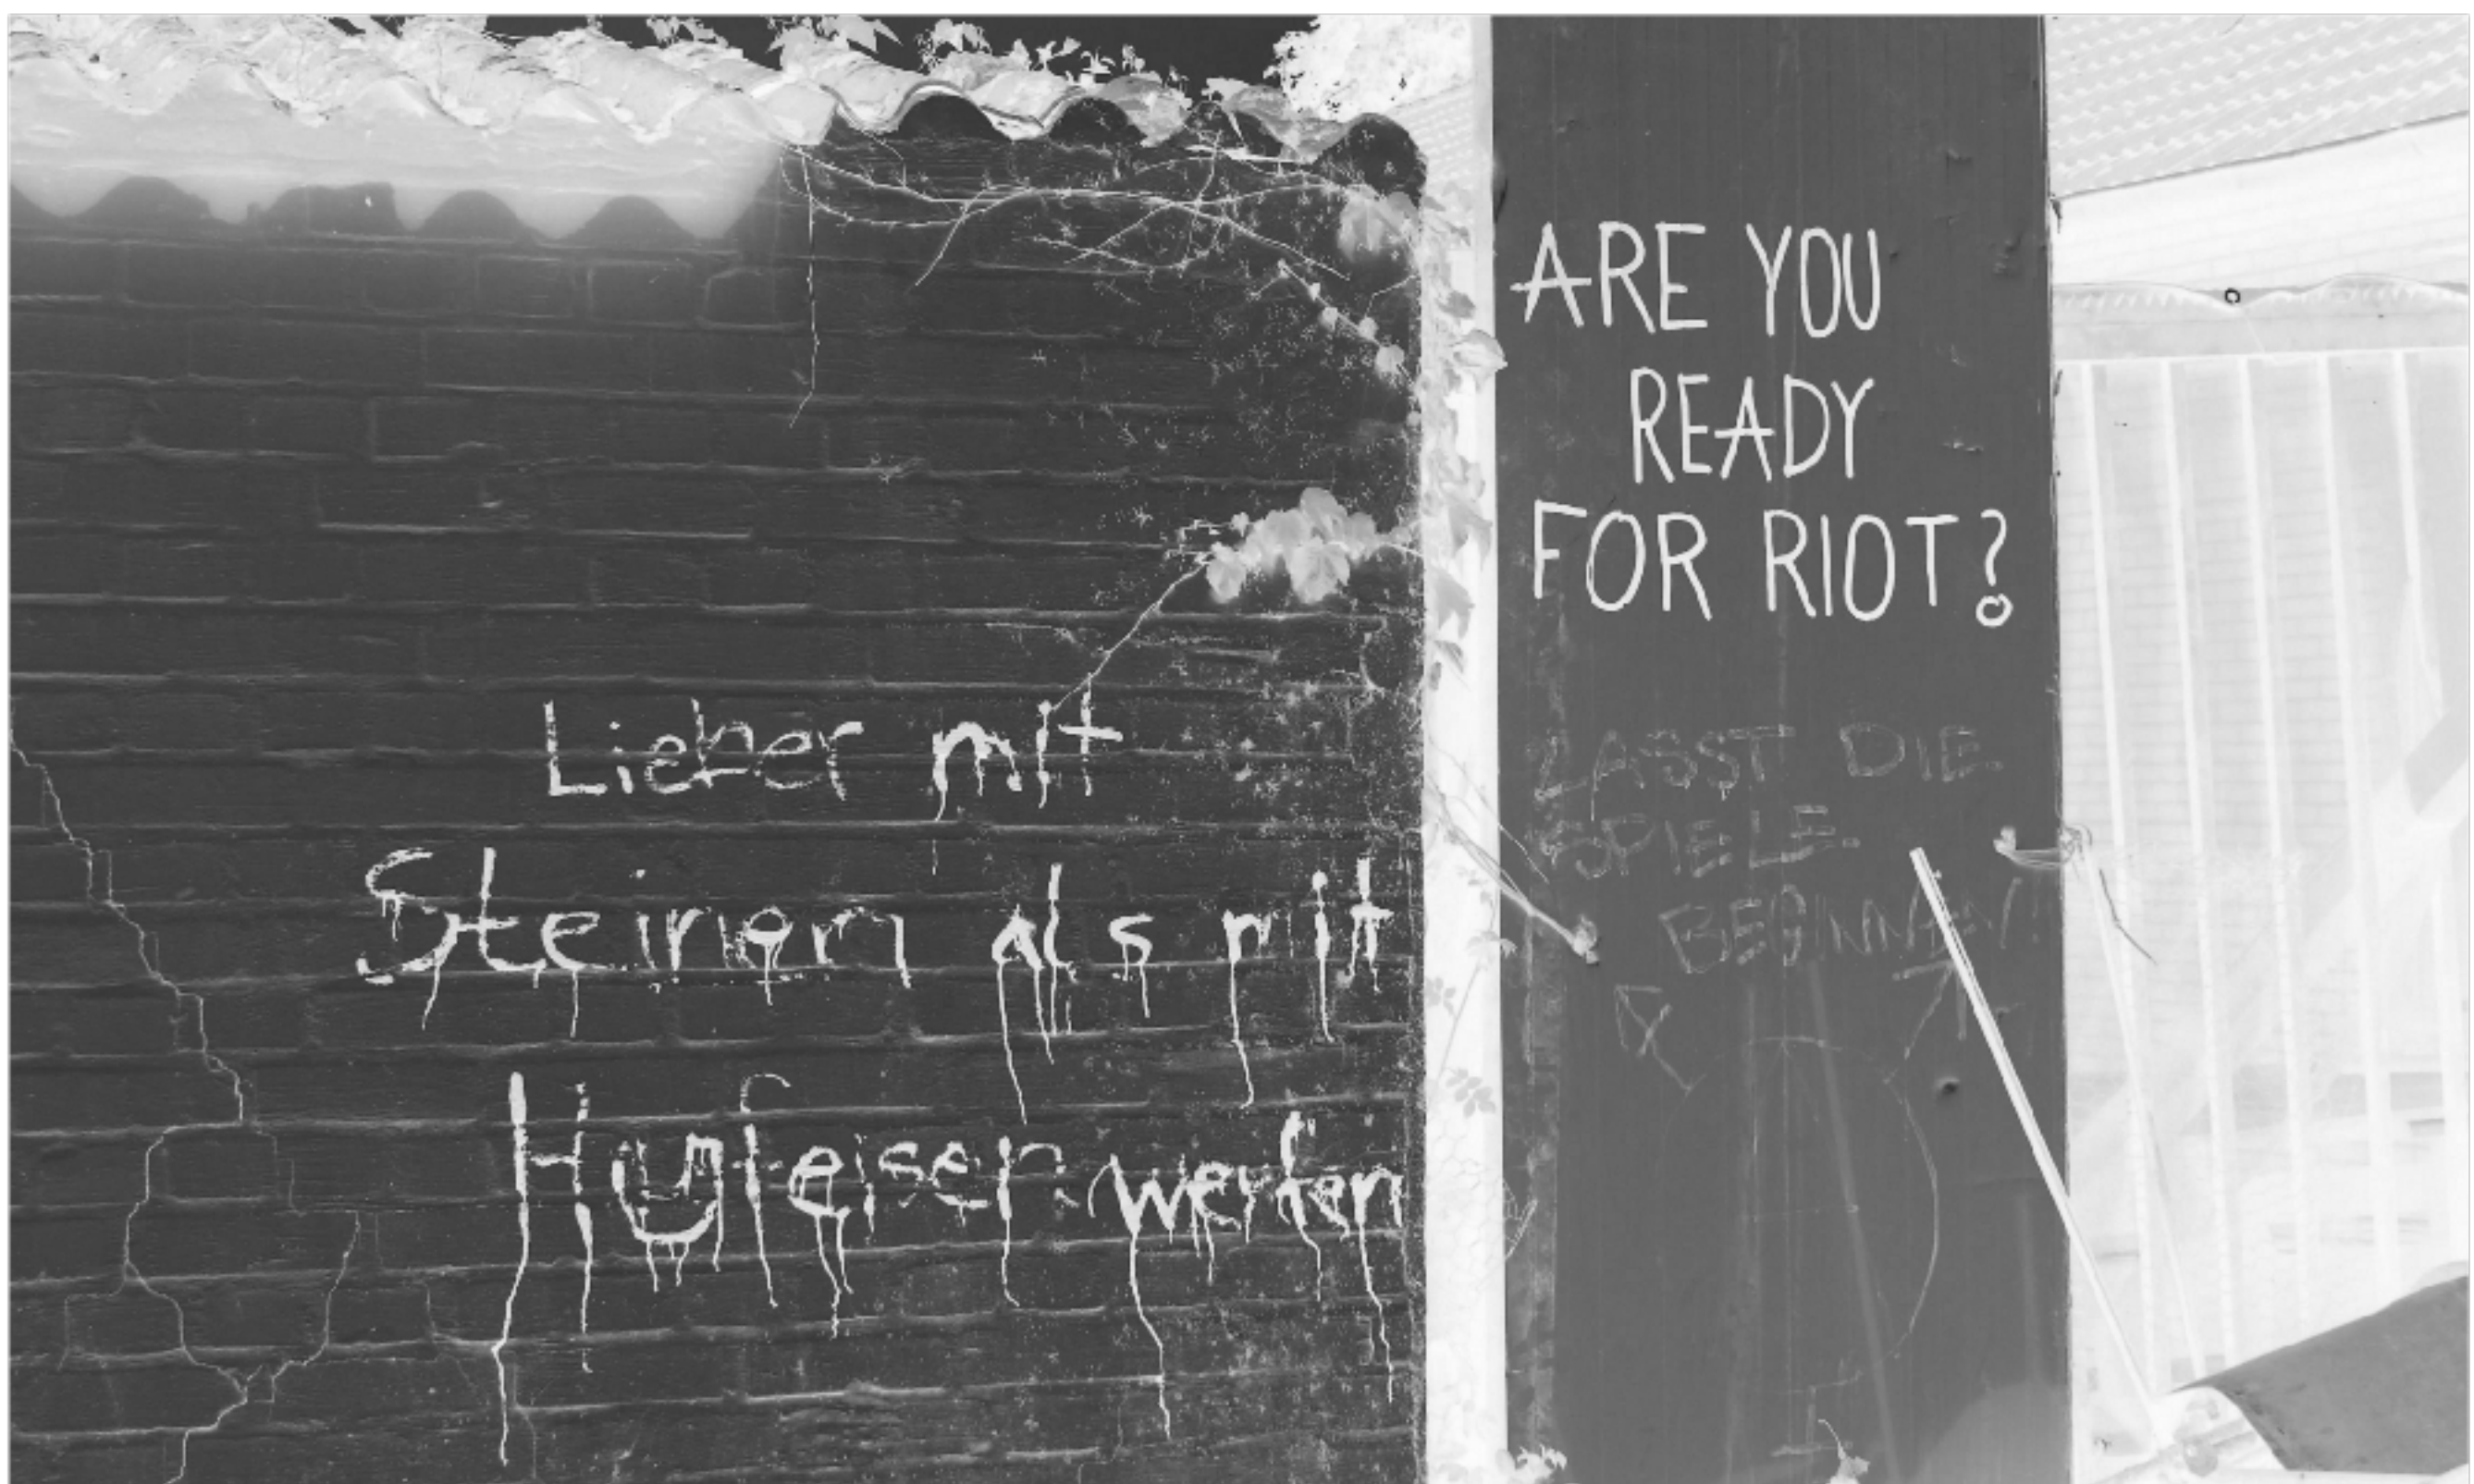 Lieber mit
Steinen als mit
Hufeisen werfen
ARE YOU
READY
FOR RIOT?
LASST DIE
SPIELE
BEGINNEN!